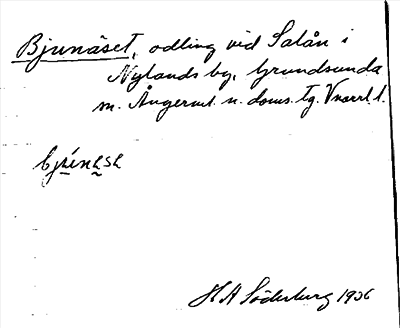 Bjunäset, odling vid Salån i
Nylands by, Grundsunda
sn. Ångerml. n. doms. tg. Vnorrl. l.
H A Söderberg 1936